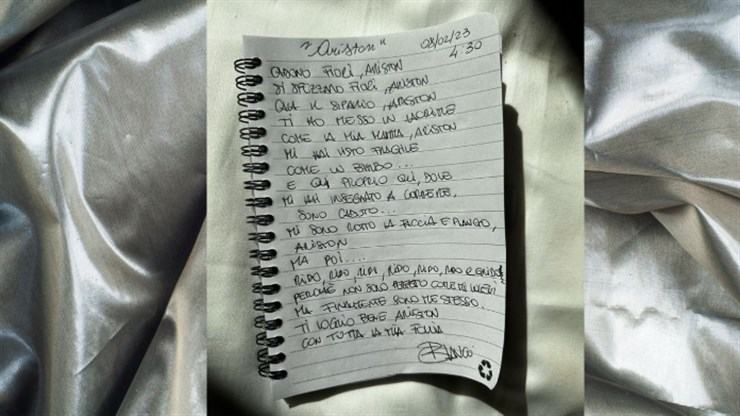 "Ariston" 08/02/23
4:30
CADONO FIORI, ARISTON
SI SPEZZANO FIORI, ARISTON
CALA IL SIPARIO, ARISTON
TI HO MESSO IN LACRIME
COME LA MIA MAMMA, ARISTON
MI HAI VISTO FRAGILE
COME UN BIMBO...
E QUI PROPRIO QUI, DOVE
MI HAI INSEGNATO A CORRERE,
SONO CADUTO...
MI SONO ROTTO LA FACCIA E PIANGO,
ARISTON
MA POI....
RIDO, RIDO, RIDO, RIDO, RIDO, RIDO E RIDO
PERCHÈ NON SONO PERFETTO COME MI VUOI
MA FINALMENTE SONO ME STESSO.
TI VOGLIO BENE ARISTON
CON TUTTA LA MIA FOLLIA
BLANCO